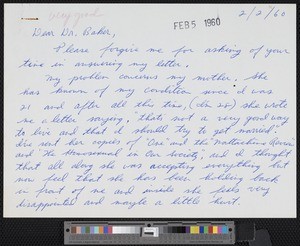 very good
2/2/60
FEB 5 1960
Dear Dr. Baker,
Please forgive me for asking of your
time in answering my letter.
My problem concerns my mother. She
has known of my condition since I was
21 and after all this time, (I'm 25) she wrote
me a letter saying, "that's not a very good way
to live and that I should try to get married."
I've sent her copies of "One and the Mattachine Review
and The Homosexual in Our Society", and I thought
that all along she was accepting everything but
now feel that she has been holding back
in front of me and inside she feels very
disappointed and maybe a little hurt.